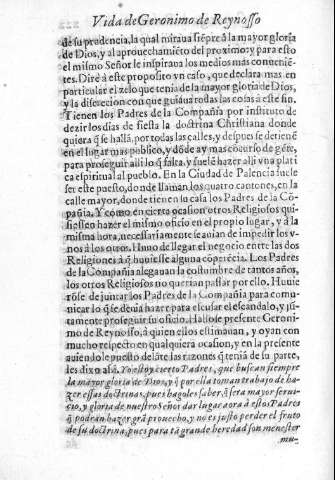 Vida de Geronimo de Reynosso
de su prudencia, la qual miraua siẽpre à la mayor gloria
de Dios, y al aprouechamiẽto del proximo: y para esto
el mismo Señor le inspiraua los medios mas conueniẽ-
tes. Dirè à este proposito vn caso, que declara mas en
particular el zelo que tenia de la mayor gloria de Dios,
y la discrecion con que guiaua todas las cosas à este fin.
Tienen los Padres de la Compañia por instituto de
dezir los dias de fiesta la doctrina Christiana donde
quiera q̃ se hallã, por todas las calles, y despues se detienẽ
en el lugar mas publico, y dõde ay mas cõcurso de gẽte,
para proseguir alli lo q̃ falta, y suelẽ hazer alli vna platica
espiritual al pueblo. En la Ciudad de Palencia suele
ser este puesto, donde llaman los quatro cantones, en la
calle mayor, donde tienen su casa los Padres de la Cõ-
pañia. Y como en cierta ocasion otros Religiosos qui-
siessen hazer el mismo oficio en el propio lugar, y à la
misma hora, necessariamente se auian de impedir los v-
nos à los otros. Huuo de llegar el negocio entre las dos
Religiones à q̃ huuiesse alguna cõpetẽcia. Los Padres
de la Compañia alegauan la costumbre de tantos años,
los otros Religiosos no querian passar por ello. Huuie
rõse de juntar los Padres de la Compañia para comu-
nicar lo q̃ se deuia hazer para escusar el escandalo, y jũ-
tamente proseguir su oficio. Hallose presente Geroni-
mo de Reynosso, à quien ellos estimauan, y oyan con
mucho respecto en qualquiera ocasion, y en la presente
auiendole puesto delãte las razones q̃ tenia de su parte,
les dixo assi. Yo estoy cierto Padres, que buscan siempre
la mayor gloria de Dios, y q̃ por ella toman trabajo de ha-
zer essas doctrinas, pues hagoles saber, q̃ sera mayor serui-
cio, y gloria de nuestro Señor dar lugar aora à estos Padres
q̃ podran hazer grã prouecho, y no es justo perder el fruto
de su doctrina, pues para tã grande heredad son menester
mu-